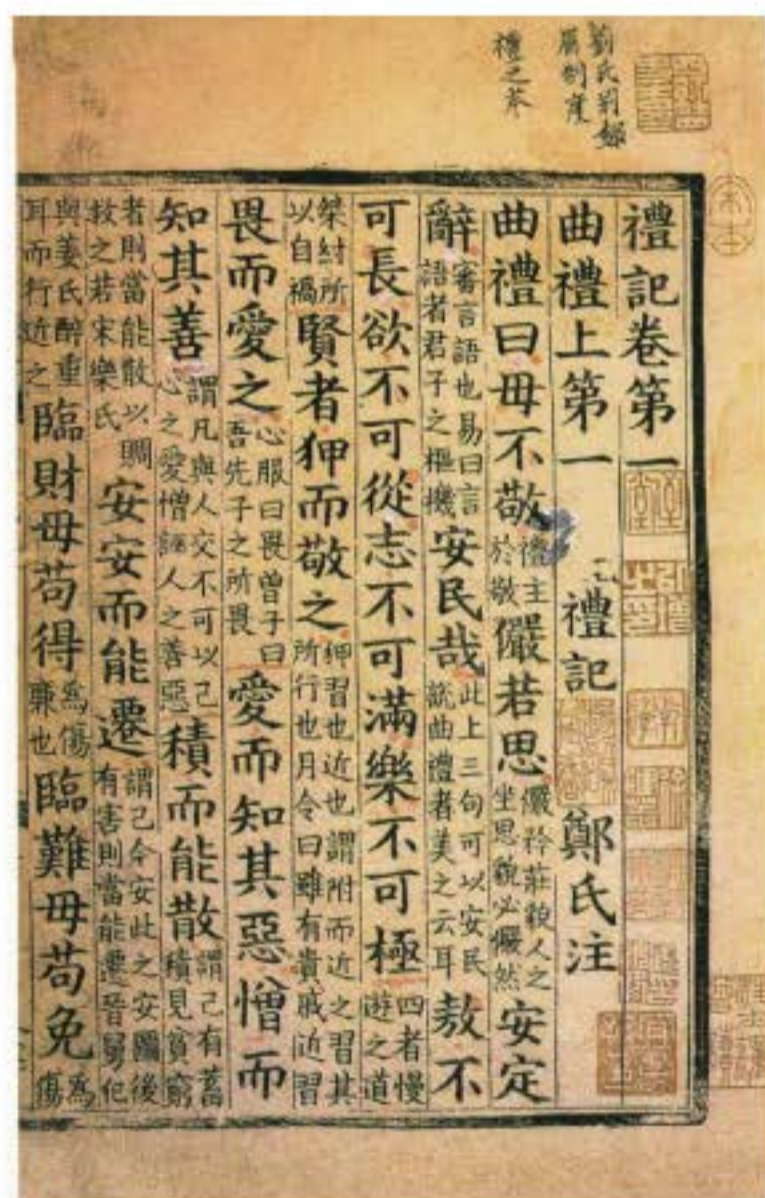 劉氏別錄
屬制度
禮記卷第一
曲禮上第一 禮記 鄭氏注
曲禮曰毋不敬禮主於敬儼若思儼矜莊貌人之坐思貌必儼然安定
辭審言語也易曰言語者君子之樞機安民哉此上三句可以安民說曲禮者美之云耳敖不
可長欲不可從志不可滿樂不可極四者慢遊之道
桀紂所以自禍賢者狎而敬之狎習也近也謂附而近之習其所行也月令曰雖有貴戚近習
畏而愛之心服曰畏曾子曰吾先子之所畏愛而知其惡憎而
知其善謂凡與人交不可以己心之愛憎誣人之善惡積而能散謂己有蓄積見貧窮
者則當能散以賙救之若宋樂氏安安而能遷謂己今安此之安圖後有害則當能遷晉舅犯
與姜氏醉重耳而行近之臨財毋苟得爲傷廉也臨難毋苟免爲傷